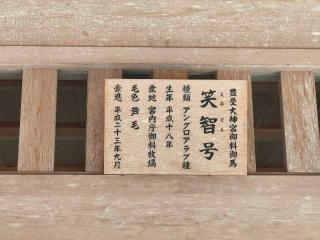 豊受大神宮御料御馬
笑智号
えみ とも
種類 アングロアラブ種
生年 平成十八年
産地 宮内庁御料牧場
毛色 芦毛
牽進 平成二十三年九月